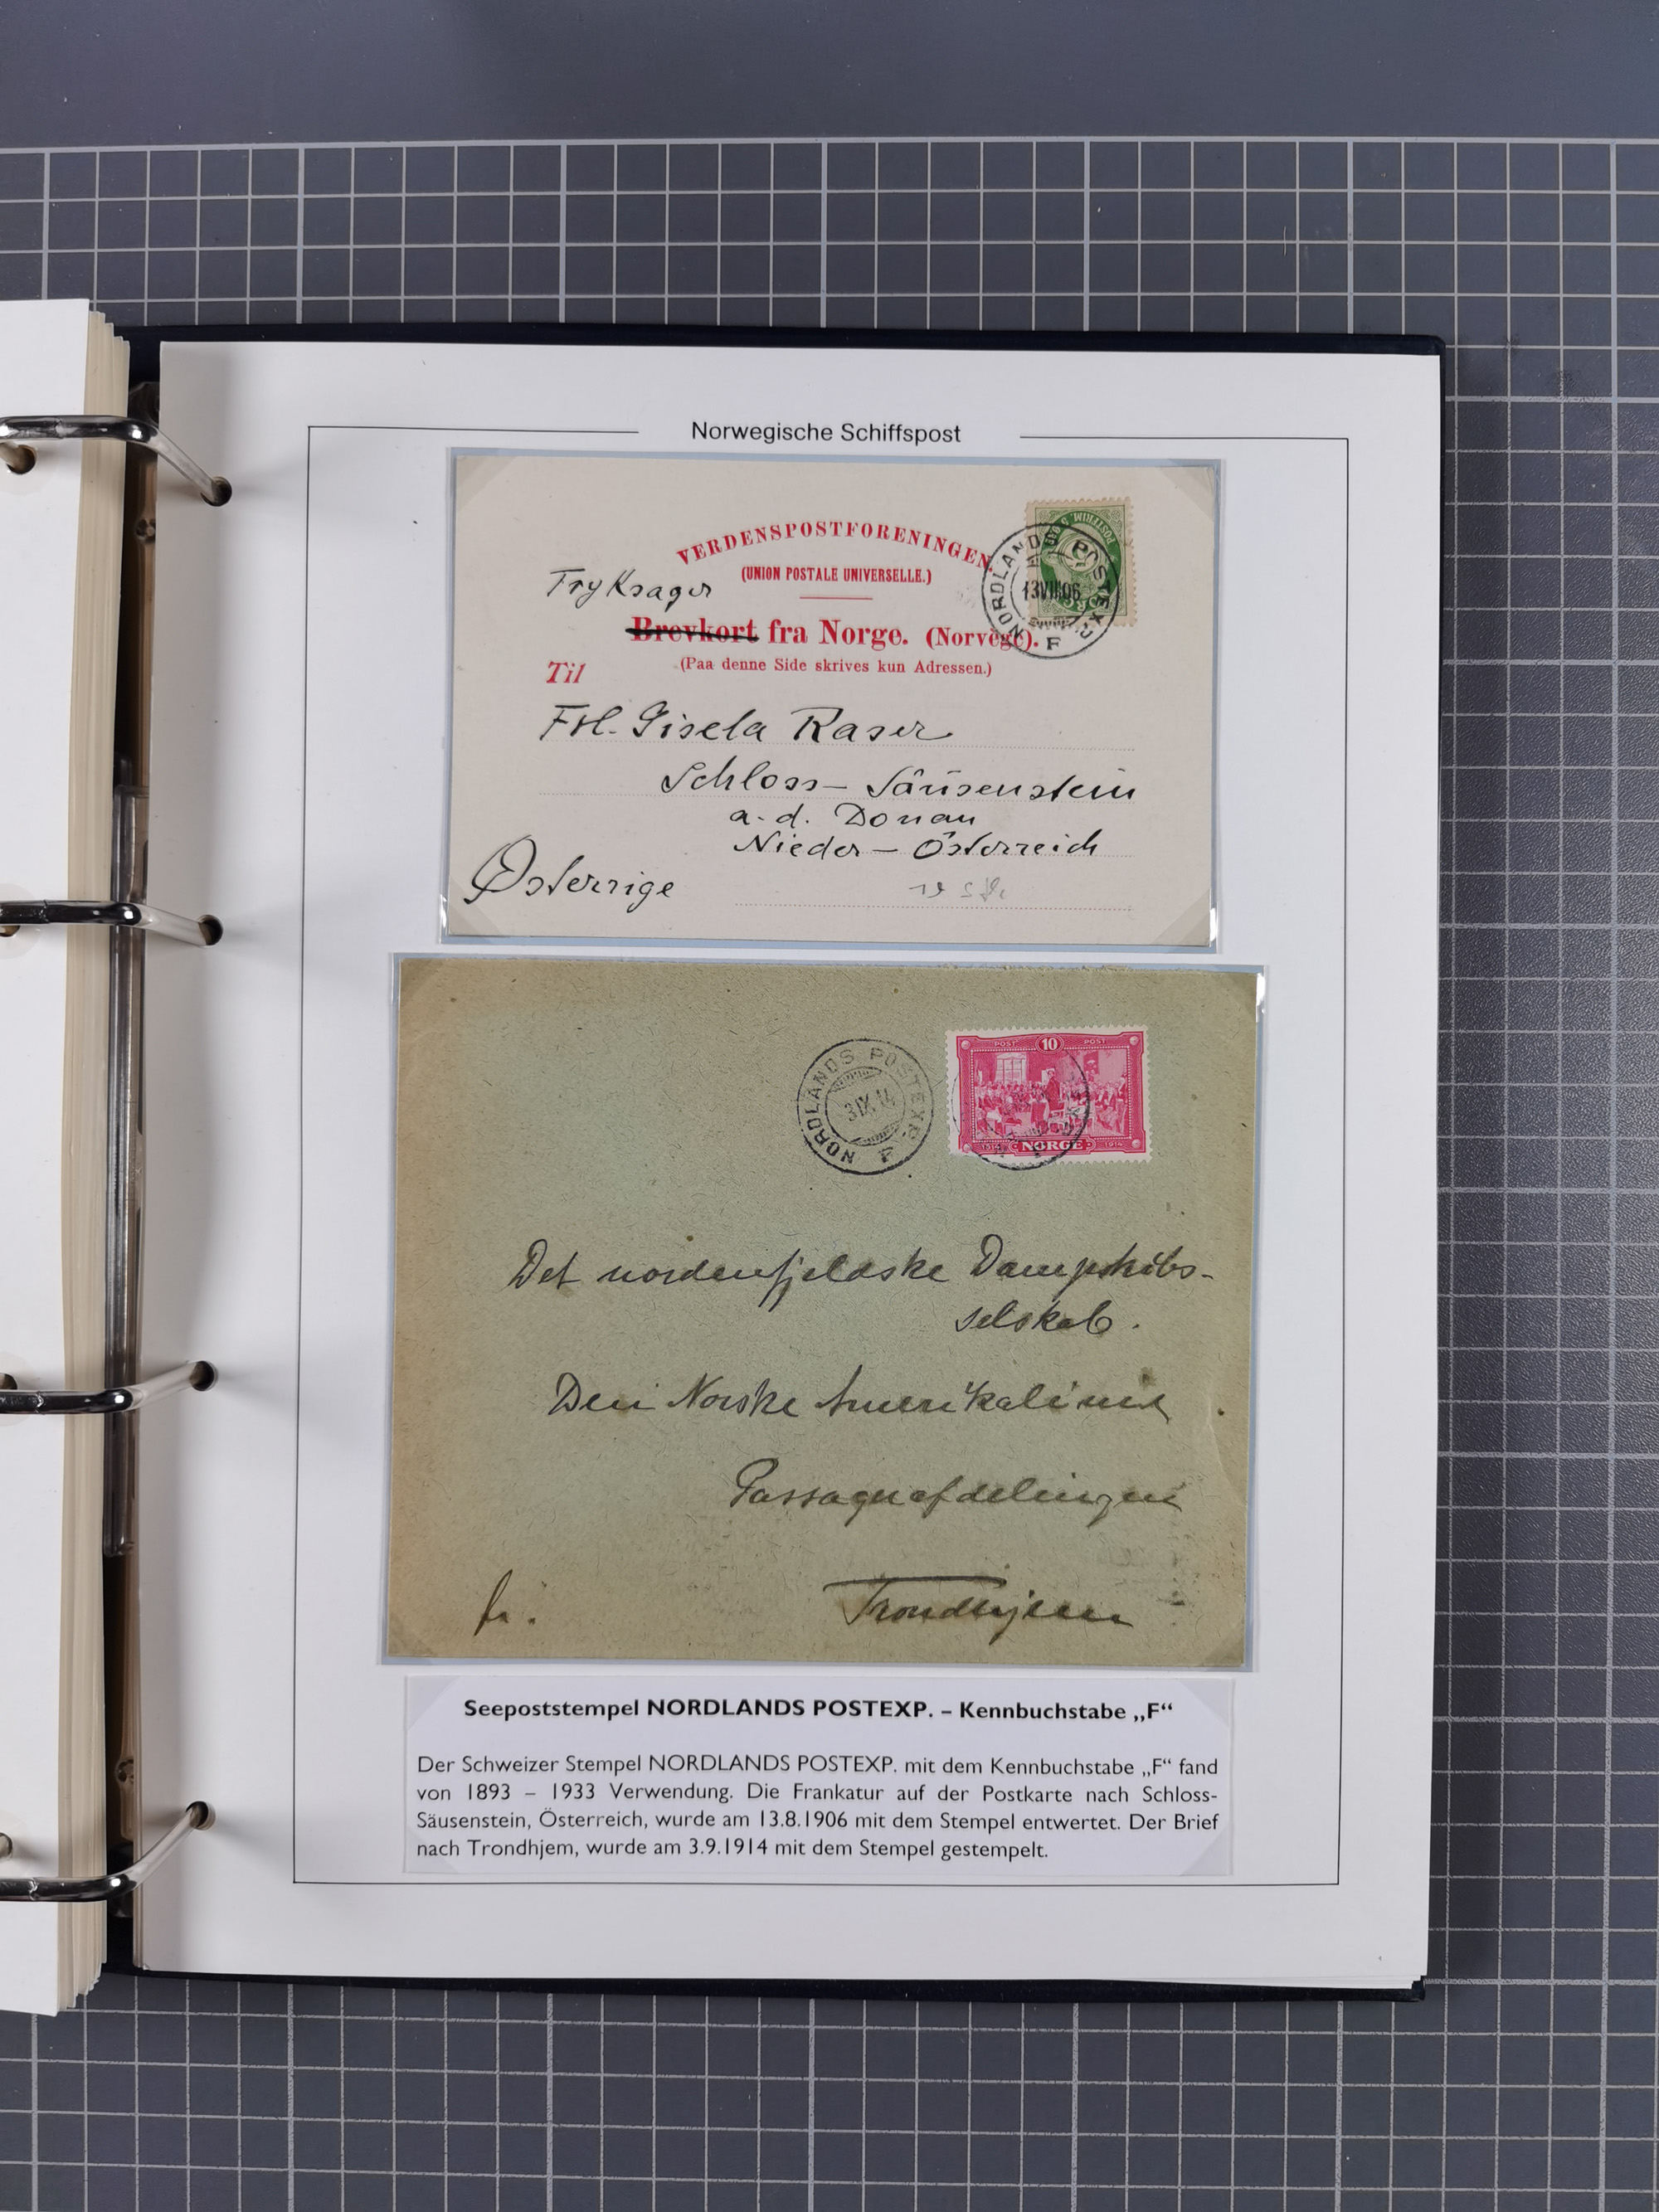 Norwegische Schiffspost
VERDENSPOSTFORENINGEN.
(UNION POSTALE UNIVERSELLE.)
Tryksager
Brevkort fra Norge. (Norvège).
(Paa denne Side skrives kun Adressen.)
Til
POSTFRIM. 5
NORDLANDS POSTEXP.
13 VIII 06
F
Frl. Gisela Raser
Schloss – Säusenstein
a. d. Donau
Nieder – Österreich
Østerrige
NORDLANDS POSTEXP.
3 IX 14
F
POST 10 POST
1814 NORGE 1914
Det nordenfjeldske Dampskibs-
selskab.
Den Norske Amerikalinie
Passagerafdelingen
Trondhjem
fr.
Seepoststempel NORDLANDS POSTEXP. – Kennbuchstabe „F“
Der Schweizer Stempel NORDLANDS POSTEXP. mit dem Kennbuchstabe „F“ fand
von 1893 – 1933 Verwendung. Die Frankatur auf der Postkarte nach Schloss-
Säusenstein, Österreich, wurde am 13.8.1906 mit dem Stempel entwertet. Der Brief
nach Trondhjem, wurde am 3.9.1914 mit dem Stempel gestempelt.